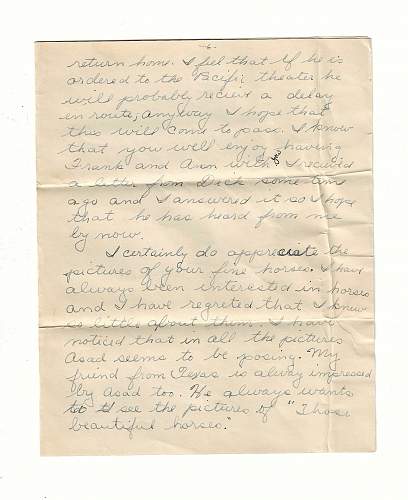 -6-
return home. I feel that if he is
ordered to the Pacific theater he
will probably recieve a delay
en route; any way I hope that
this will come to pass. I know
that you will enjoy having
Frank and Ann with you. I recieved
a letter from Dick some time
ago and I answered it so I hope
that he has heard from me
by now.
I certainly do appreciate the
pictures of your fine horses. I have
always been interested in horses
and I have regretted that I knew
so little about them. I have
noticed that in all the pictures
Asad seems to be posing. My
friend from Texas is alway impressed
by Asad too. He always wants
to see the pictures of "Those
beautiful horses."